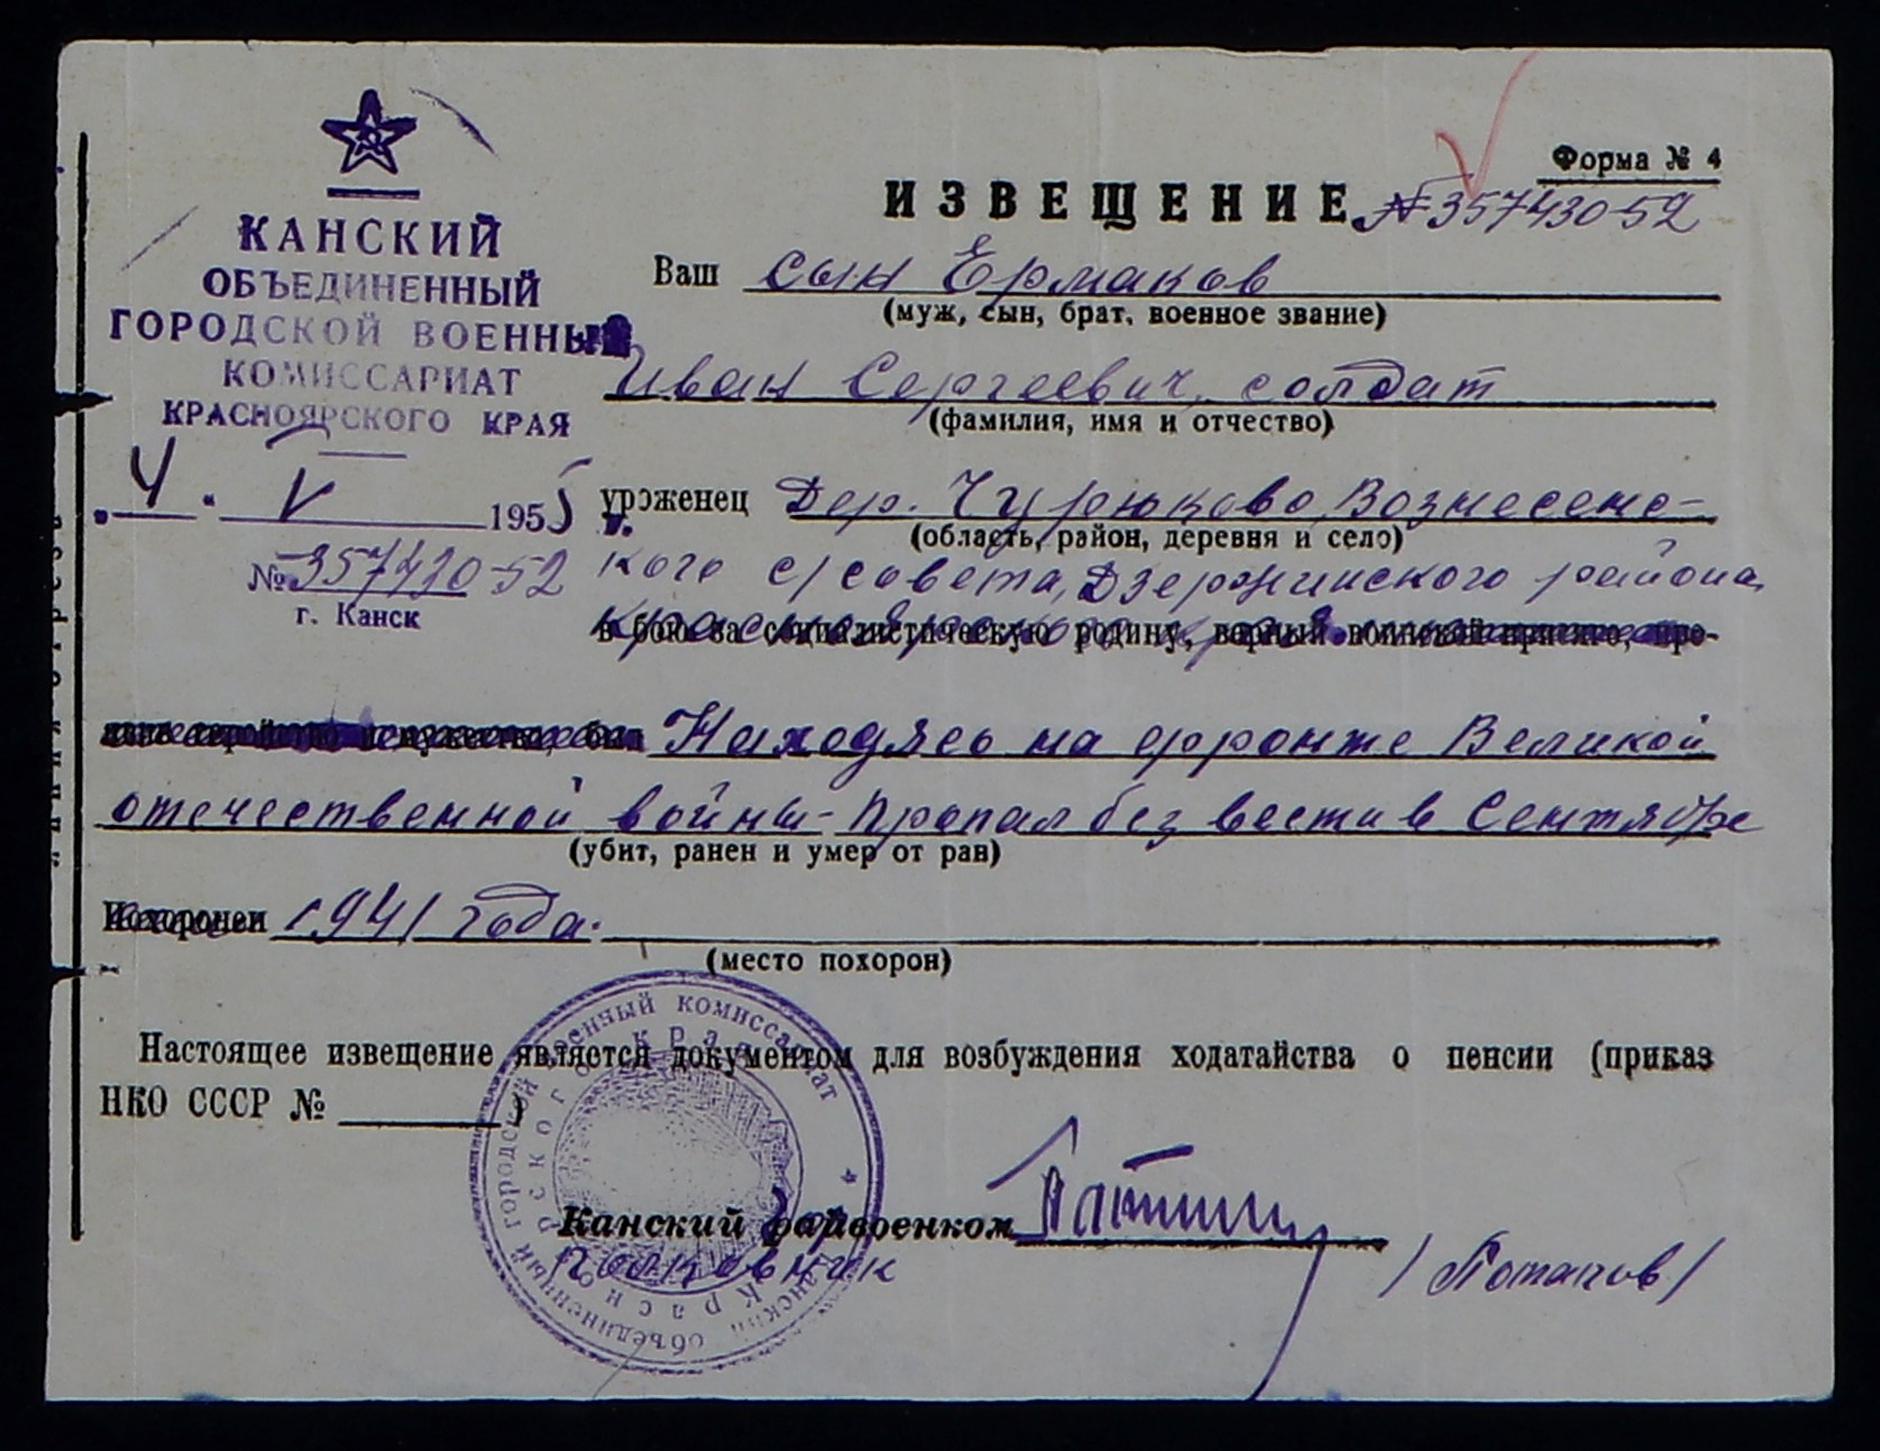 КАНСКИЙ
ОБЪЕДИНЕННЫЙ
ГОРОДСКОЙ ВОЕННЫЙ
КОМИССАРИАТ
КРАСНОЯРСКОГО КРАЯ
4 V 1955 г.
№ 357430-52
г. Канск
Форма № 4
ИЗВЕЩЕНИЕ № 357430-52
Ваш сын Ермаков
(муж, сын, брат, военное звание)
Иван Сергеевич, солдат
(фамилия, имя и отчество)
уроженец Дер. Чурюково, Вознесенс-
(область, район, деревня и село)
кого с/совета, Дзержинского района,
Красноярского края.
в бою за социалистическую родину, верный воинской присяге, про-
явив геройство и мужество, был Находясь на фронте Великой
отечественной войны - пропал без вести в Сентябре
(убит, ранен и умер от ран)
Похоронен 1941 года.
(место похорон)
Настоящее извещение является документом для возбуждения ходатайства о пенсии (приказ
НКО СССР № )
Канский райвоенком
Полковник /Потапов/
Канский объединенный городской военный комиссариат
Красноярского края